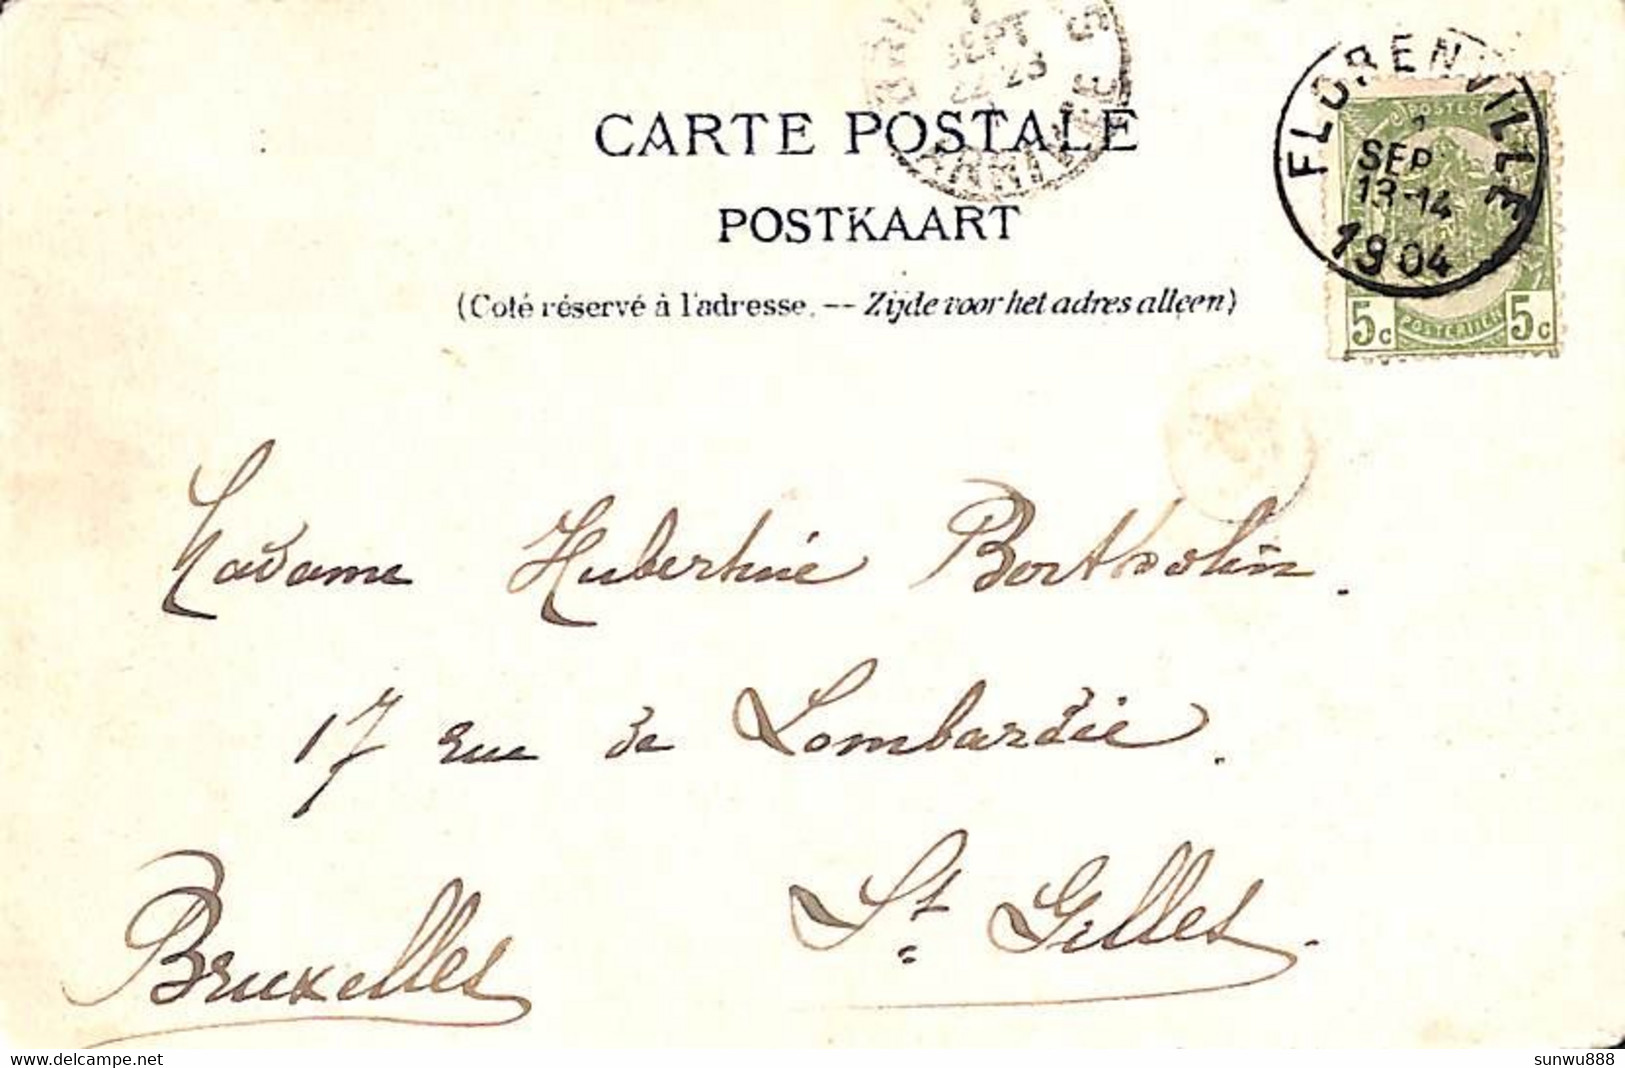 SEPT
22-23
ARRIVÉE
FLORENVILLE
SEP
13-14
1904
POSTES
5c POSTERIJEN 5c
CARTE POSTALE
POSTKAART
(Coté réservé à l'adresse. -- Zijde voor het adres alleen)
Madame Hubertine Borthsolin.
17 rue de Lombardie.
St Gilles.
Bruxelles
sunwu888
delcampe.net